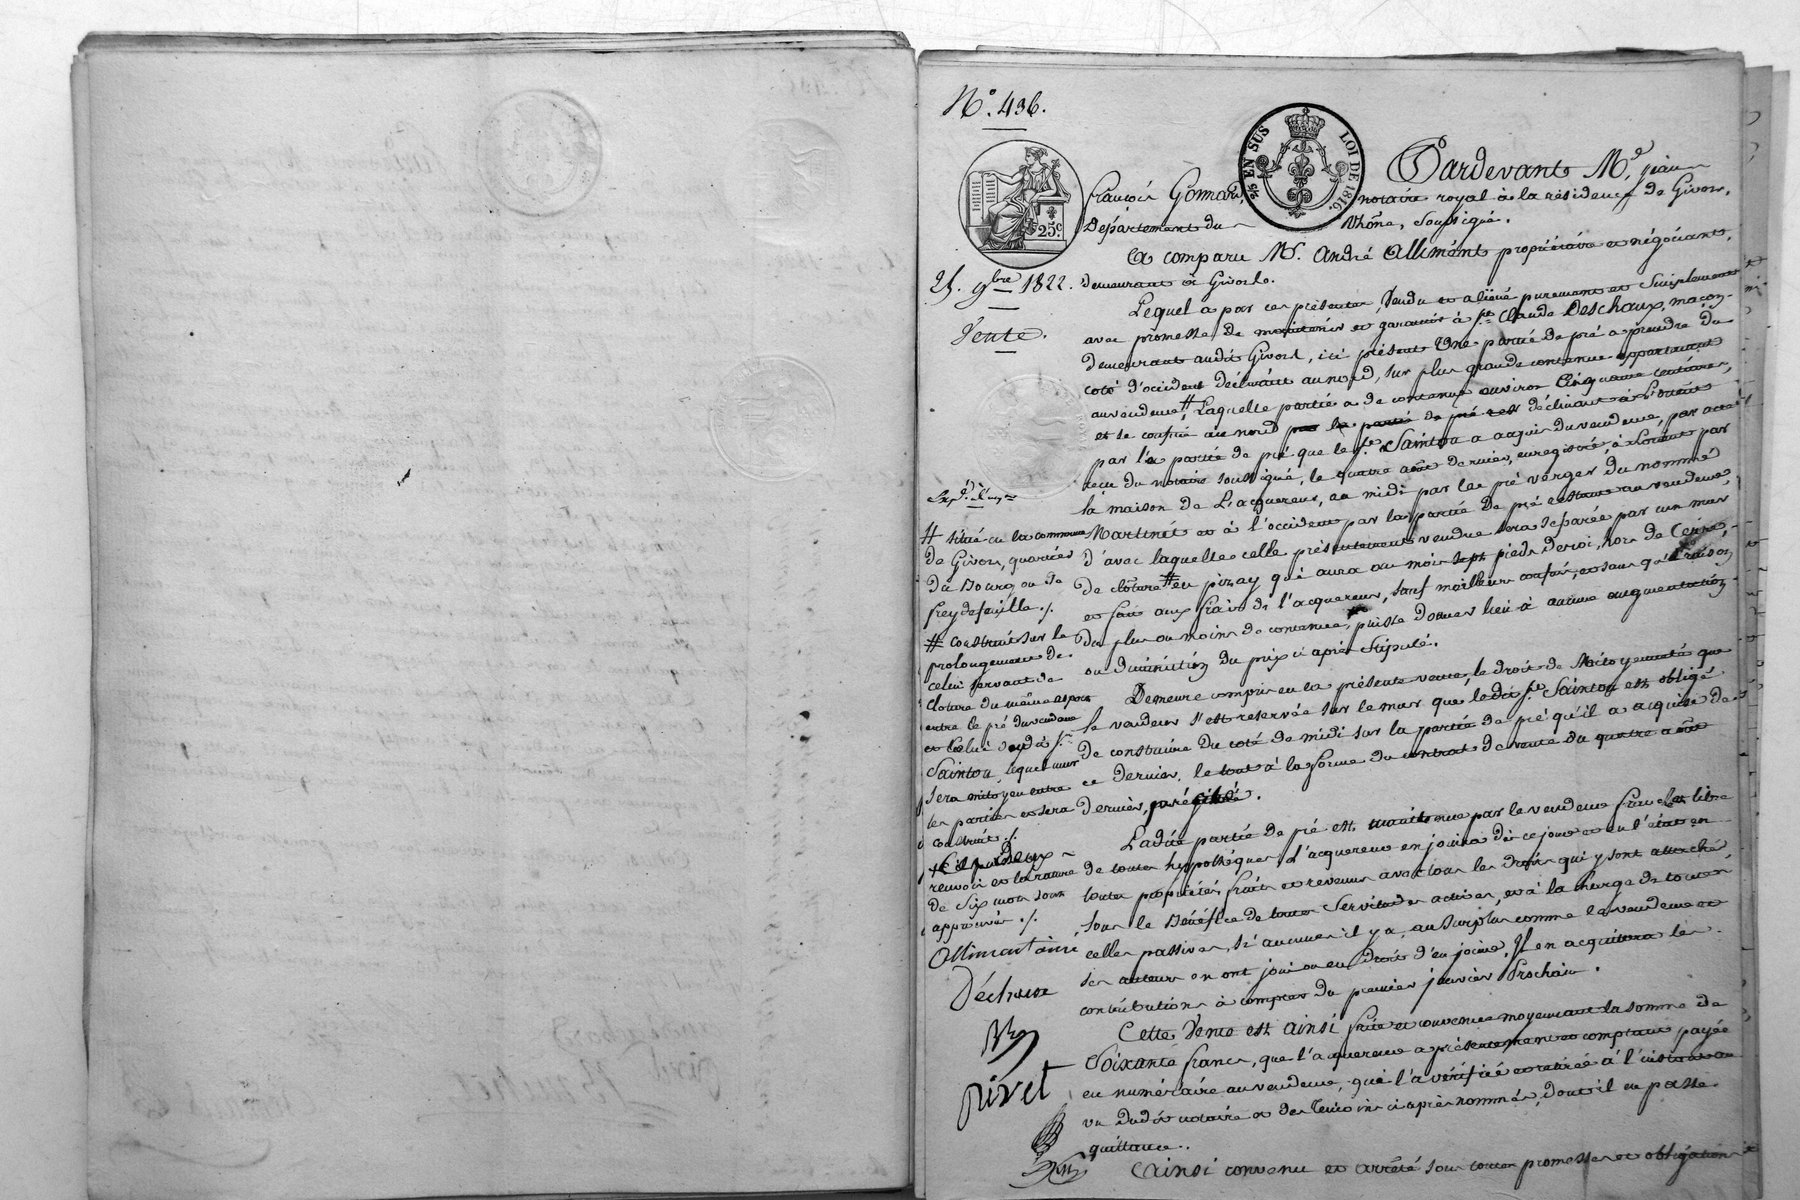 N.° 436.
2/5 EN SUS LOI DE 1816.
25.c
Pardevant M.e jean
françois Gomard, notaire royal à la résidence de Givors,
Département du Rhône, soussigné.
A comparu M.r André Allimant propriétaire et négociant,
demeurant à Givors.
25. 9bre 1822.
Vente.
Lequel a par ces présentes, vendu et aliéné purement et simplement
avec promesse de maintenir et garantir à s.r Claude Deschaux, maçon
demeurant audit Givors, ici présent une partie de pré a prendre du
coté d'occident déclinant au nord, sur plus grande contenue appartenant
au vendeur, # Laquelle partie a de contenue environ Cinquante centiares,
et se confine au nord par la partie de pré est déclinant à l'orient
par la partie de pré que le s.r Saintou a acquis du vendeur, par acte
reçu du notaire soussigné, le quatre août dernier, enregistré, à l'orient par
la maison de l'acquereur, au midi par le pré verger du nommé
Martinet et à l'occident par la partie de pré restante au vendeur,
d'avec laquelle celle présentement vendue sera séparée par un mur
de clôture # en pizay qui aura au moins sept pieds de roi, hors de terre
et fait aux frais de l'acquereur, sauf meilleurs confins, et sans qu'à raison
du plus ou moins de contenue, puisse donner lieu à aucune augmentation
ou diminution du prix ci après stipulé.
# situé en la commune
de Givors, quartier
du Bourg ou de
freydefeuille ./.
# construit sur le
prolongement de
celui servant de
cloture du même aspect
entre le pré du vendeur
et celui vendu à s.r
Saintou, lequel mur
sera mitoyen entre
les parties et sera
construit ./.
renvoi et la rature
de six mots sont
approuvés ./.
Allimant ainé
Déchaux
Rivet
Demeure compris en la présente vente, le droit de Mitoyenneté que
le vendeur s'est reservée sur le mur que ledit s.r Saintou est obligé
de construire du coté de midi sur la partie de pré qu'il a acquise de
ce dernier, le tout à la forme du contrat de vente du quatre août
dernier, précité.
Ladite partie de pré est maintenue par le vendeur franche et libre
de toutes hypothèques, l'acquereur en jouira dès ce jour et en l'état en
toutes propriétés, fruits et revenus avec tous les droits qui y sont attachés
sous le Bénéfice de toutes Servitudes actives, et à la charge de toutes
celles passives, si aucunes il y a, au surplus comme le vendeur et
ses auteurs en ont joui ou eu Droit d'en jouir, Il en acquittera les
contributions à compter du premier janvier Prochain.
Cette Vente est ainsi faite et convenue moyennant la somme de
Soixante francs, que l'acquereur a présentement et comptant payée
en numéraire au vendeur, qui l'a vérifiée et retirée à l'instant au
vu dudit notaire et des témoins ci après nommés, dont il en passe
quittance.
Ainsi convenu et arrêté sous toutes promesses et obligations